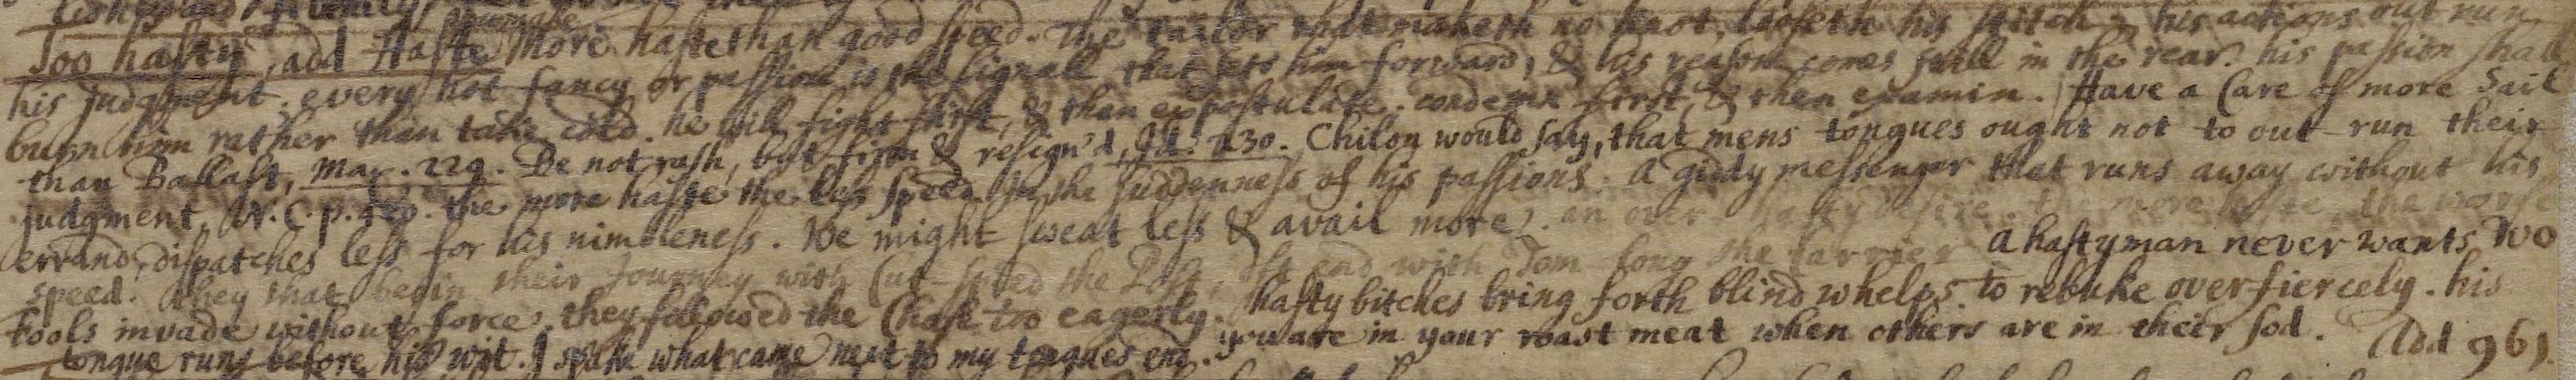 Too hasty, add Haste More haste than good speed. The Tailor that maketh no knot, looseth his stitch, his actions out run
his judgment. every hot fancy or passion is the signall that sets him forward, & his reason comes still in the rear. his passion shall
burn him rather than take cold. he will fight first, & then expostulate. condemn first, & then examin. Have a Care of more Sail
than Ballast, Max. 229. Be not rash, but firm & resign'd, Id. 230. Chilon would say, that mens tongues ought not to out-run their
judgment, N. C. p. the more haste the less speed. the suddenness of his passions. A giddy messenger that runs away without his
errand, dispatches less for his nimbleness. We might sweat less & avail more. an over hasty desire. the more haste, the worse
speed. they that begin their Journey with Cut-speed the Post, end with Tom long the Carrier A hasty man never wants Wo
Fools invade without force. they followed the Chase too eagerly. hasty bitches bring forth blind whelps. to rebuke overfiercely. his
tongue runs before his wit. I spake what came next to my tongues end. you are in your roast meat when others are in their sod. Add 961.